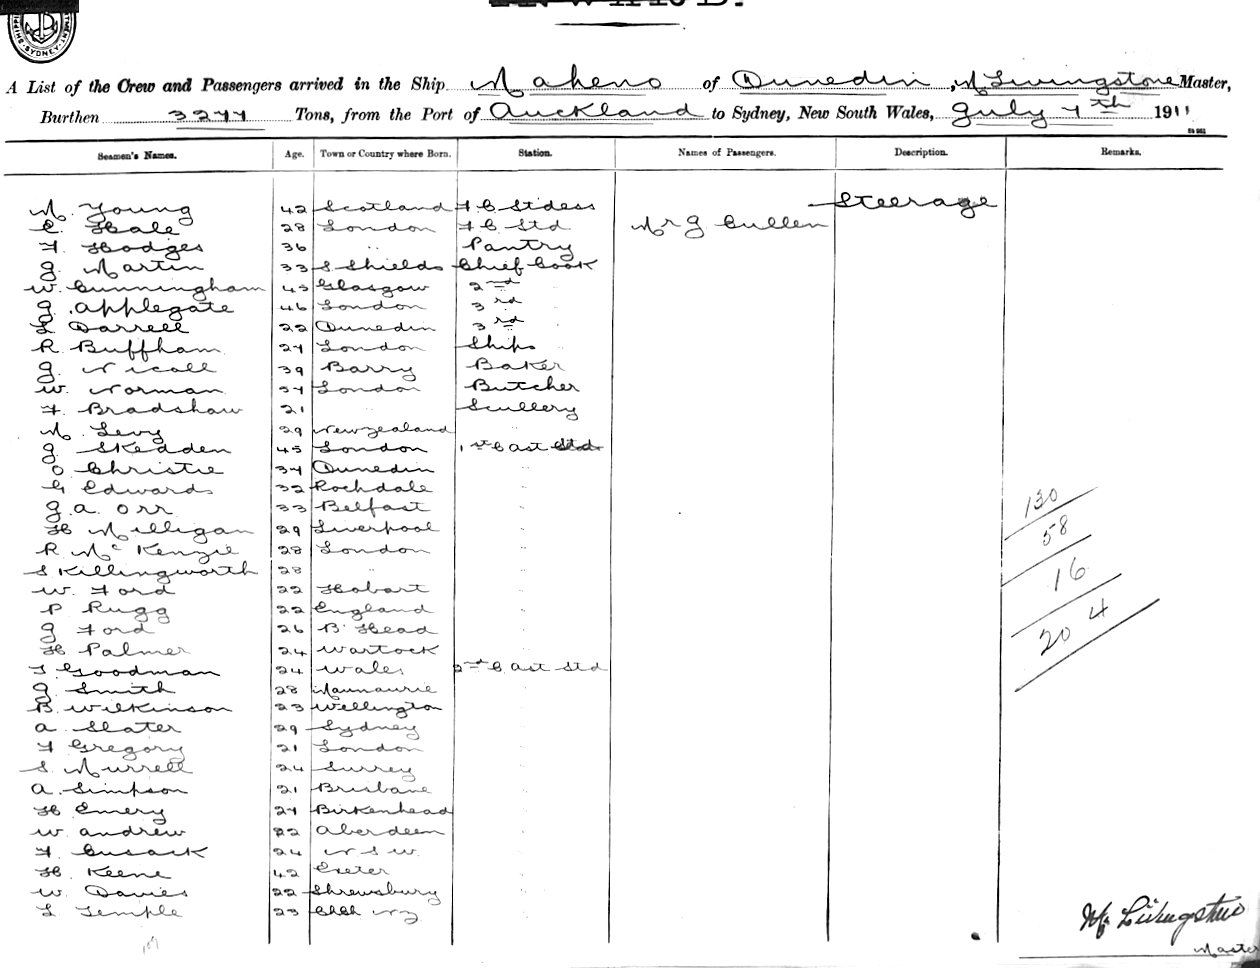 A List of the Crew and Passengers arrived in the Ship Maheno of Dunedin, M Livingstone Master,
Burthen 3244 Tons, from the Port of Auckland to Sydney, New South Wales, July 4th 1911
Seamen's Names. Age. Town or Country where Born. Station. Names of Passengers. Description. Remarks.
Steerage
M. Young 42 Scotland F C Stdess
C. Hale 28 London F C Std Mr J Cullen
F. Hodges 36 " Pantry
J. Martin 33 S Shields Chief Cook
W. Cunningham 43 Glasgow 2nd "
J. Applegate 46 London 3rd "
L Darrell 22 Dunedin 3rd "
R Buffham 24 London Ships "
J. Nicoll 39 Barry Baker
W. Norman 34 London Butcher
F. Bradshaw 21 " Scullery
M. Levy 29 New Zealand "
J Skedden 45 London 1st C Ast Std
O Christie 34 Dunedin "
G Edwards 32 Rochdale "
J. A. Orr 33 Belfast "
H Milligan 29 Liverpool "
R Mc Kenzie 28 London "
S Killingworth 28 " "
W. Ford 22 Hobart "
P Rugg 22 England "
J Ford 26 B' Head "
H Palmer 24 Wartock "
T. Goodman 24 Wales 2nd C Ast Std
J Smith 28 "
B. Wilkinson 23 Wellington "
A Slater 29 Sydney "
F Gregory 21 London "
S. Murrell 24 Surrey "
A. Simpson 21 Brisbane "
H Emery 24 Birkenhead "
W. Andrew 22 Aberdeen "
F. Cusack 24 N S W. "
H. Keene 42 Exeter "
W. Davies 22 Shrewsbury "
L Temple 23 ChCh NZ "
130
58
16
204
M Livingstone
Master